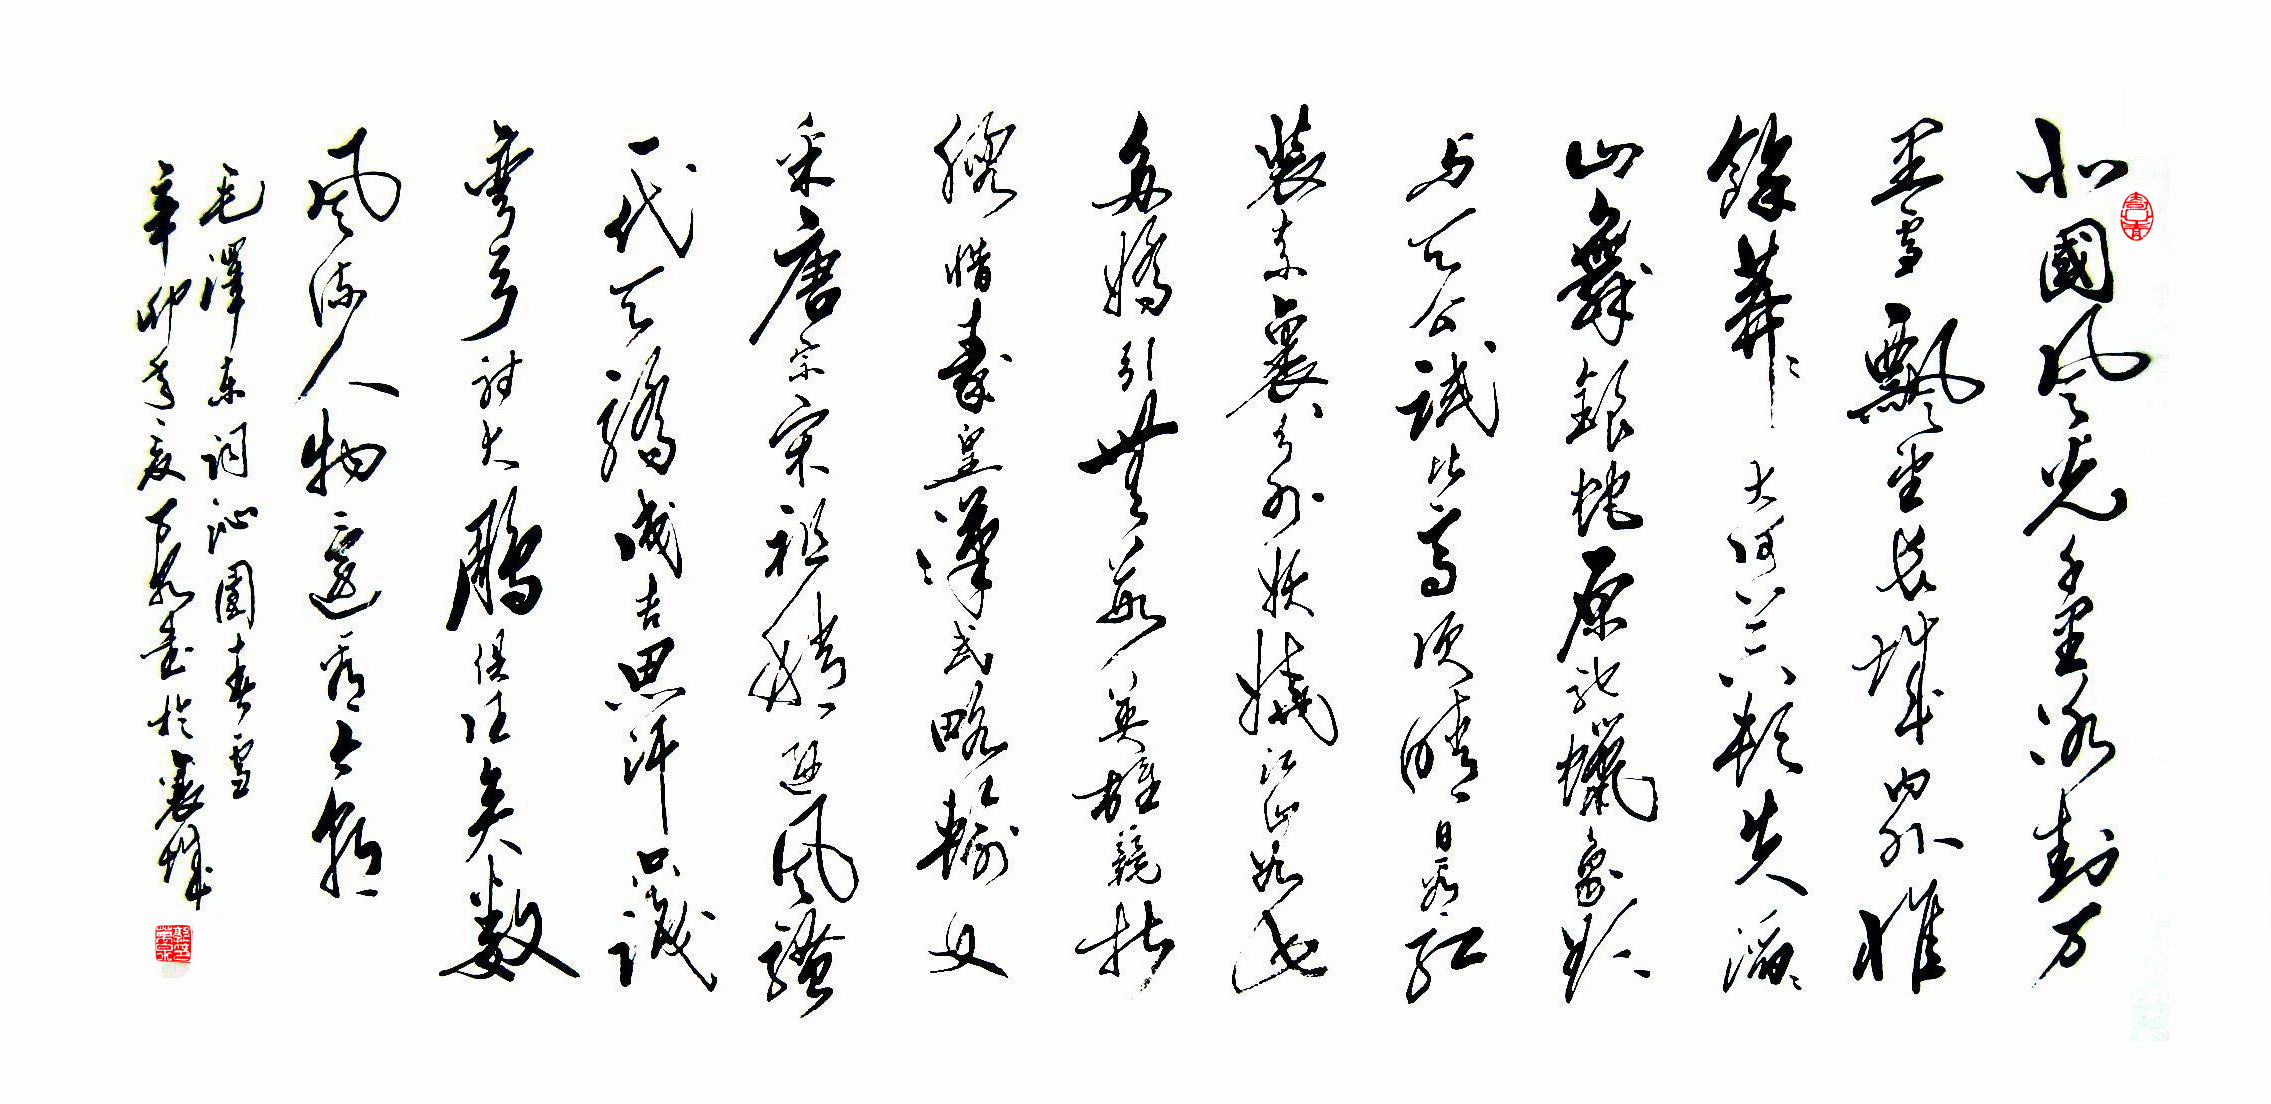 北國风光千里冰封万
里雪飄望长城内外惟
餘莽〻大河上下頓失滔〻
山舞銀蛇原驰蠟象欲
与天公試比高须晴日看红
装素裹分外妖嬈江山如此
多嬌引無數英雄競折
腰惜秦皇漢武略輸文
采唐宗宋祖稍逊风骚
一代天骄成吉思汗只識
彎弓射大鵰俱往矣数
风流人物還看今朝
毛澤东词沁園春雪
辛卯年夏万泉書於襄城